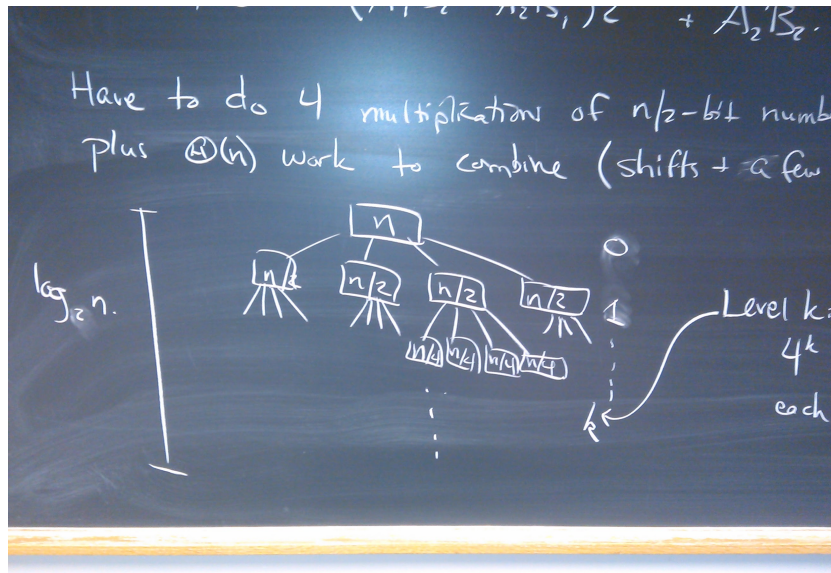 + A₂B₂.
Have to do 4 multiplications of n/2-bit numb
plus Θ(n) work to combine (shifts + a few
log₂ n.
n
0
n/2 n/2 n/2 n/2
1
n/4 n/4 n/4 n/4
k
Level k:
4ᵏ
each